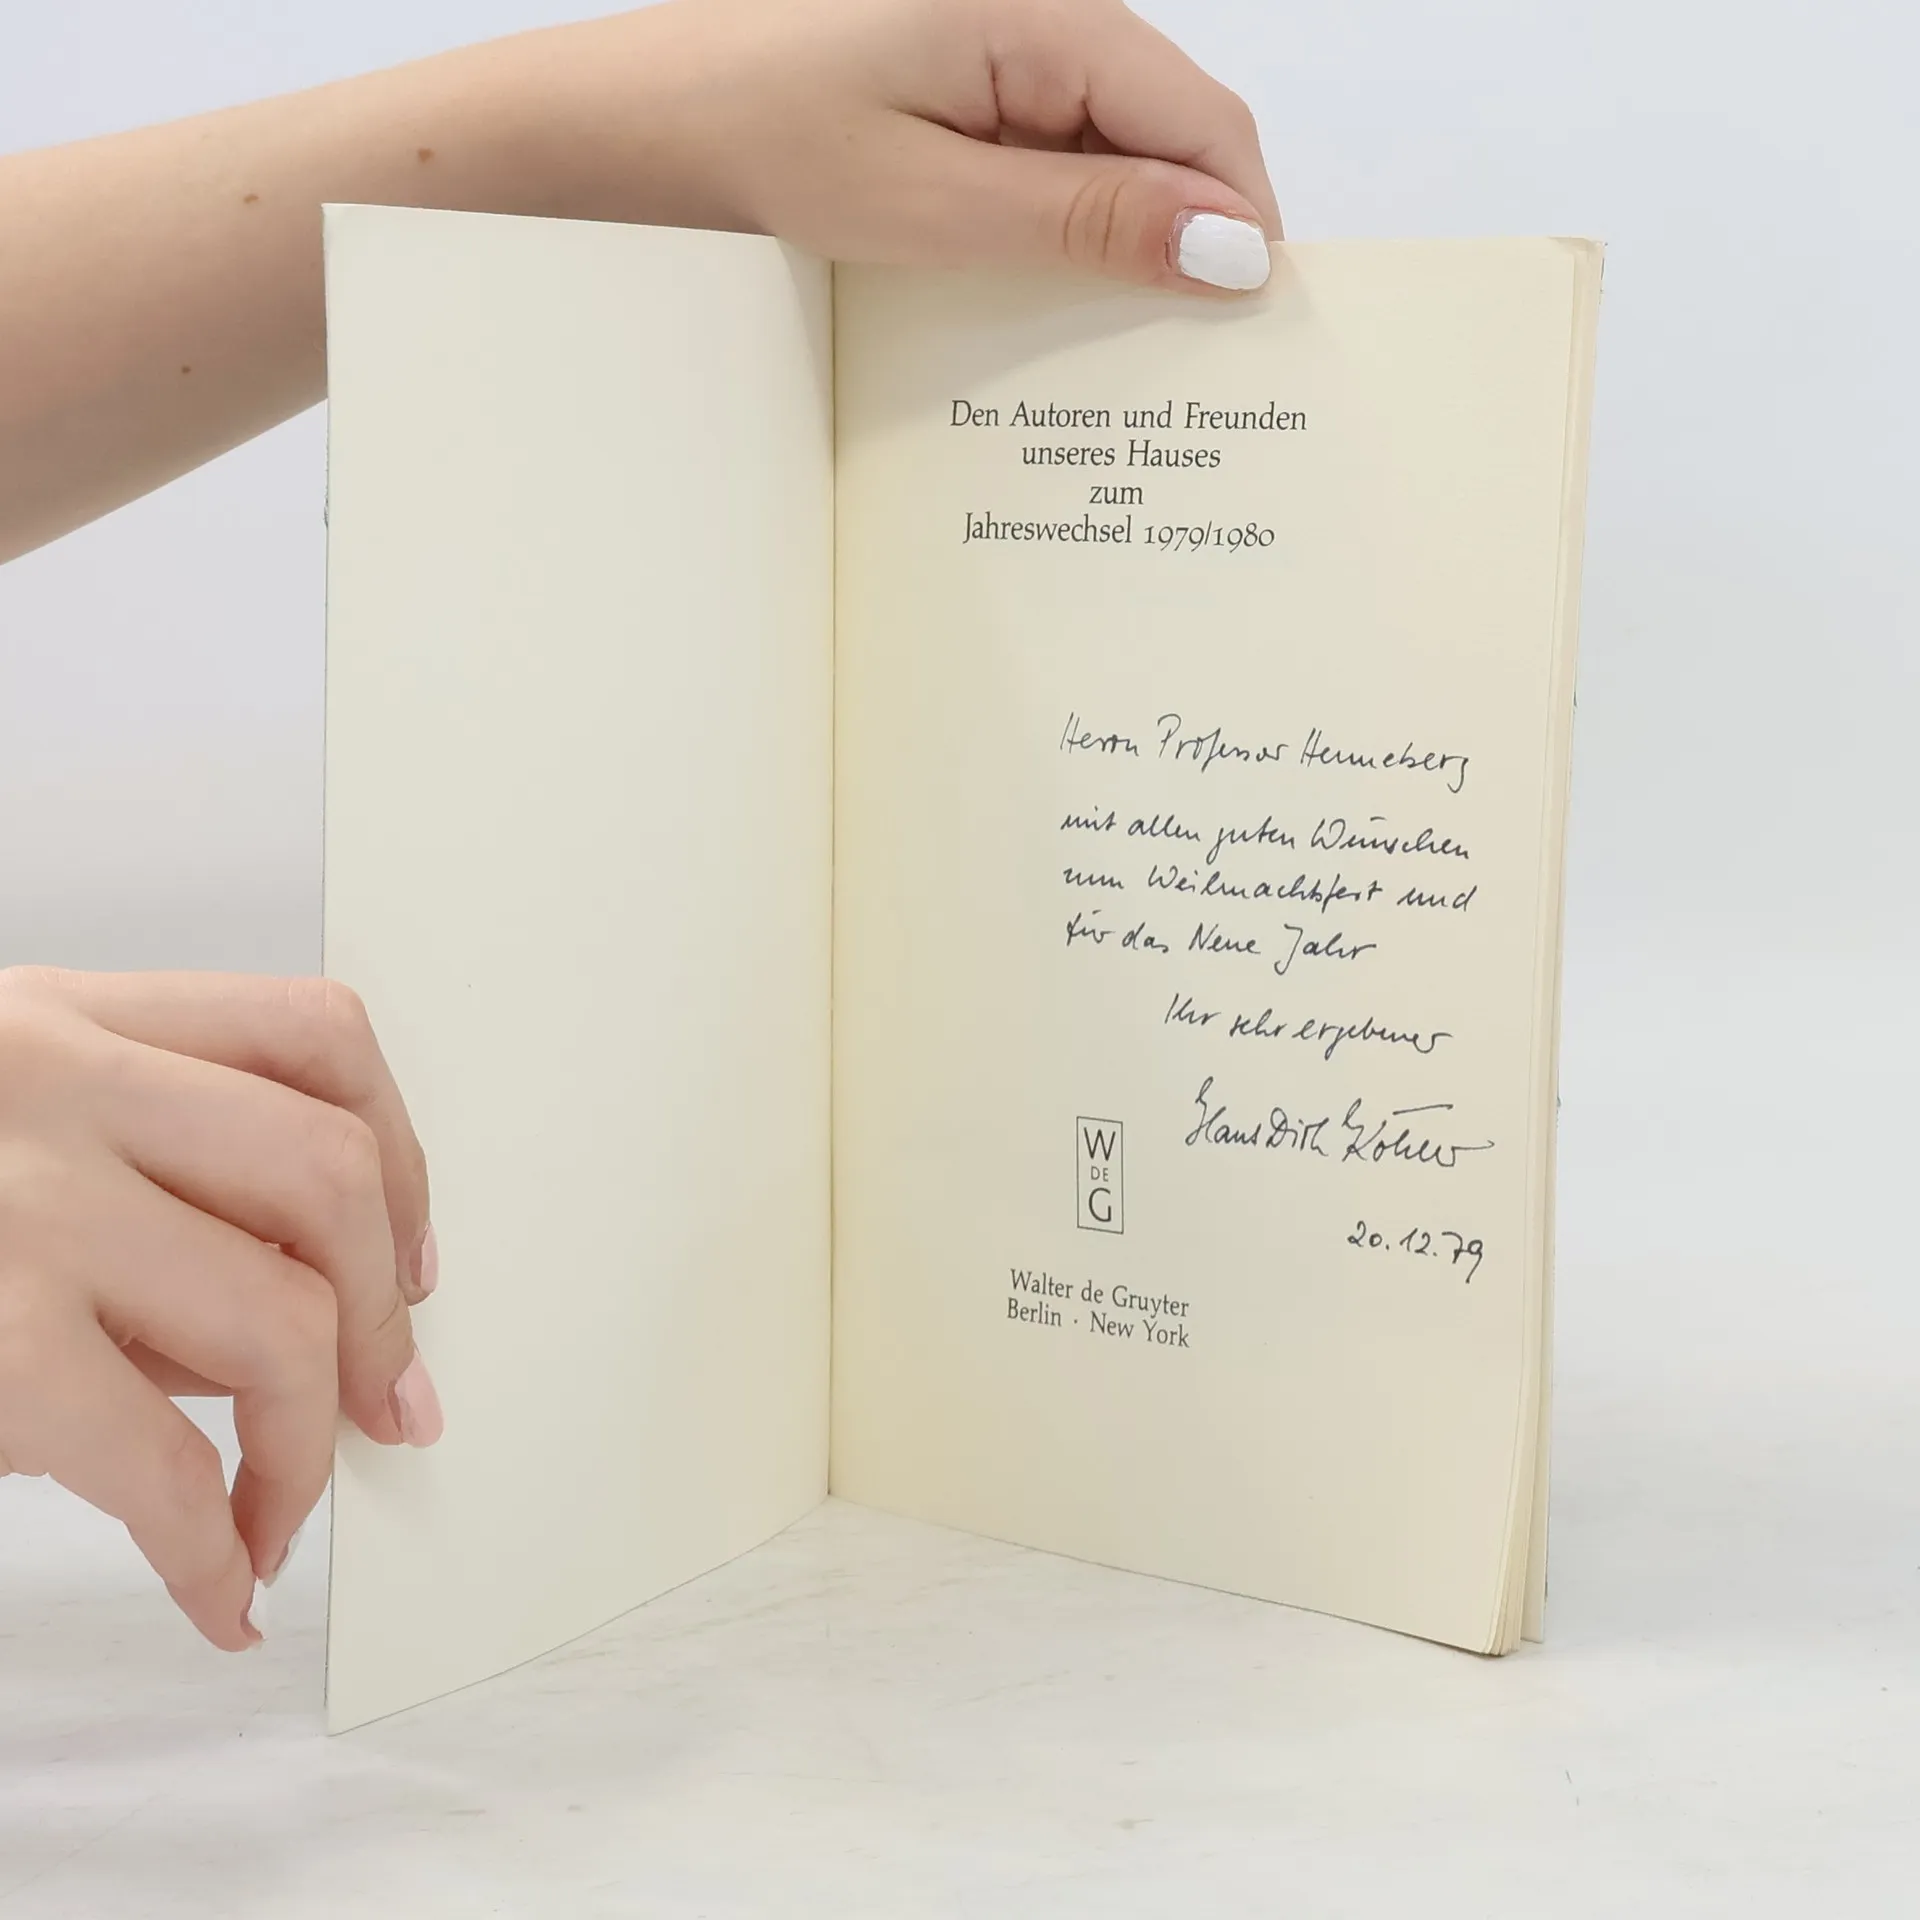 Den Autoren und Freunden
unseres Hauses
zum
Jahreswechsel 1979/1980
Herrn Professor Henneberg
mit allen guten Wünschen
zum Weihnachtsfest und
für das Neue Jahr
Ihr sehr ergebener
Hans Dirk Köhler
20.12.79
W
DE
G
Walter de Gruyter
Berlin · New York